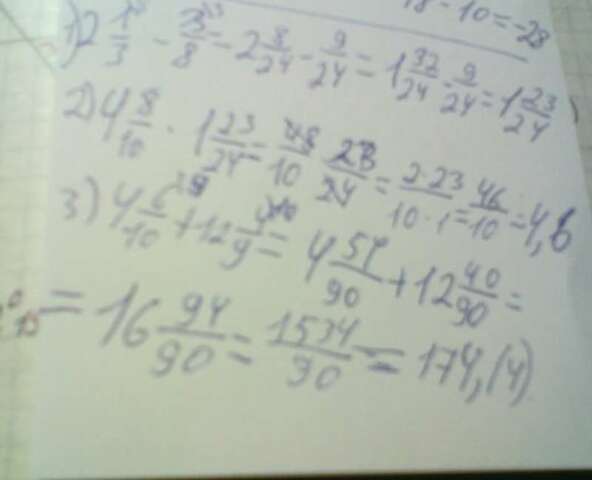 18 - 10 = -28
1) 2 1/3 - 3/8 = 2 8/24 - 9/24 = 1 32/24 - 9/24 = 1 23/24
2) 4 8/10 · 1 23/24 = 48/10 · 23/24 = 2·23/10·1 = 46/10 = 4,6
3) 4 6/10 + 12 4/9 = 4 54/90 + 12 40/90 =
= 16 94/90 = 1534/90 = 174,(4)